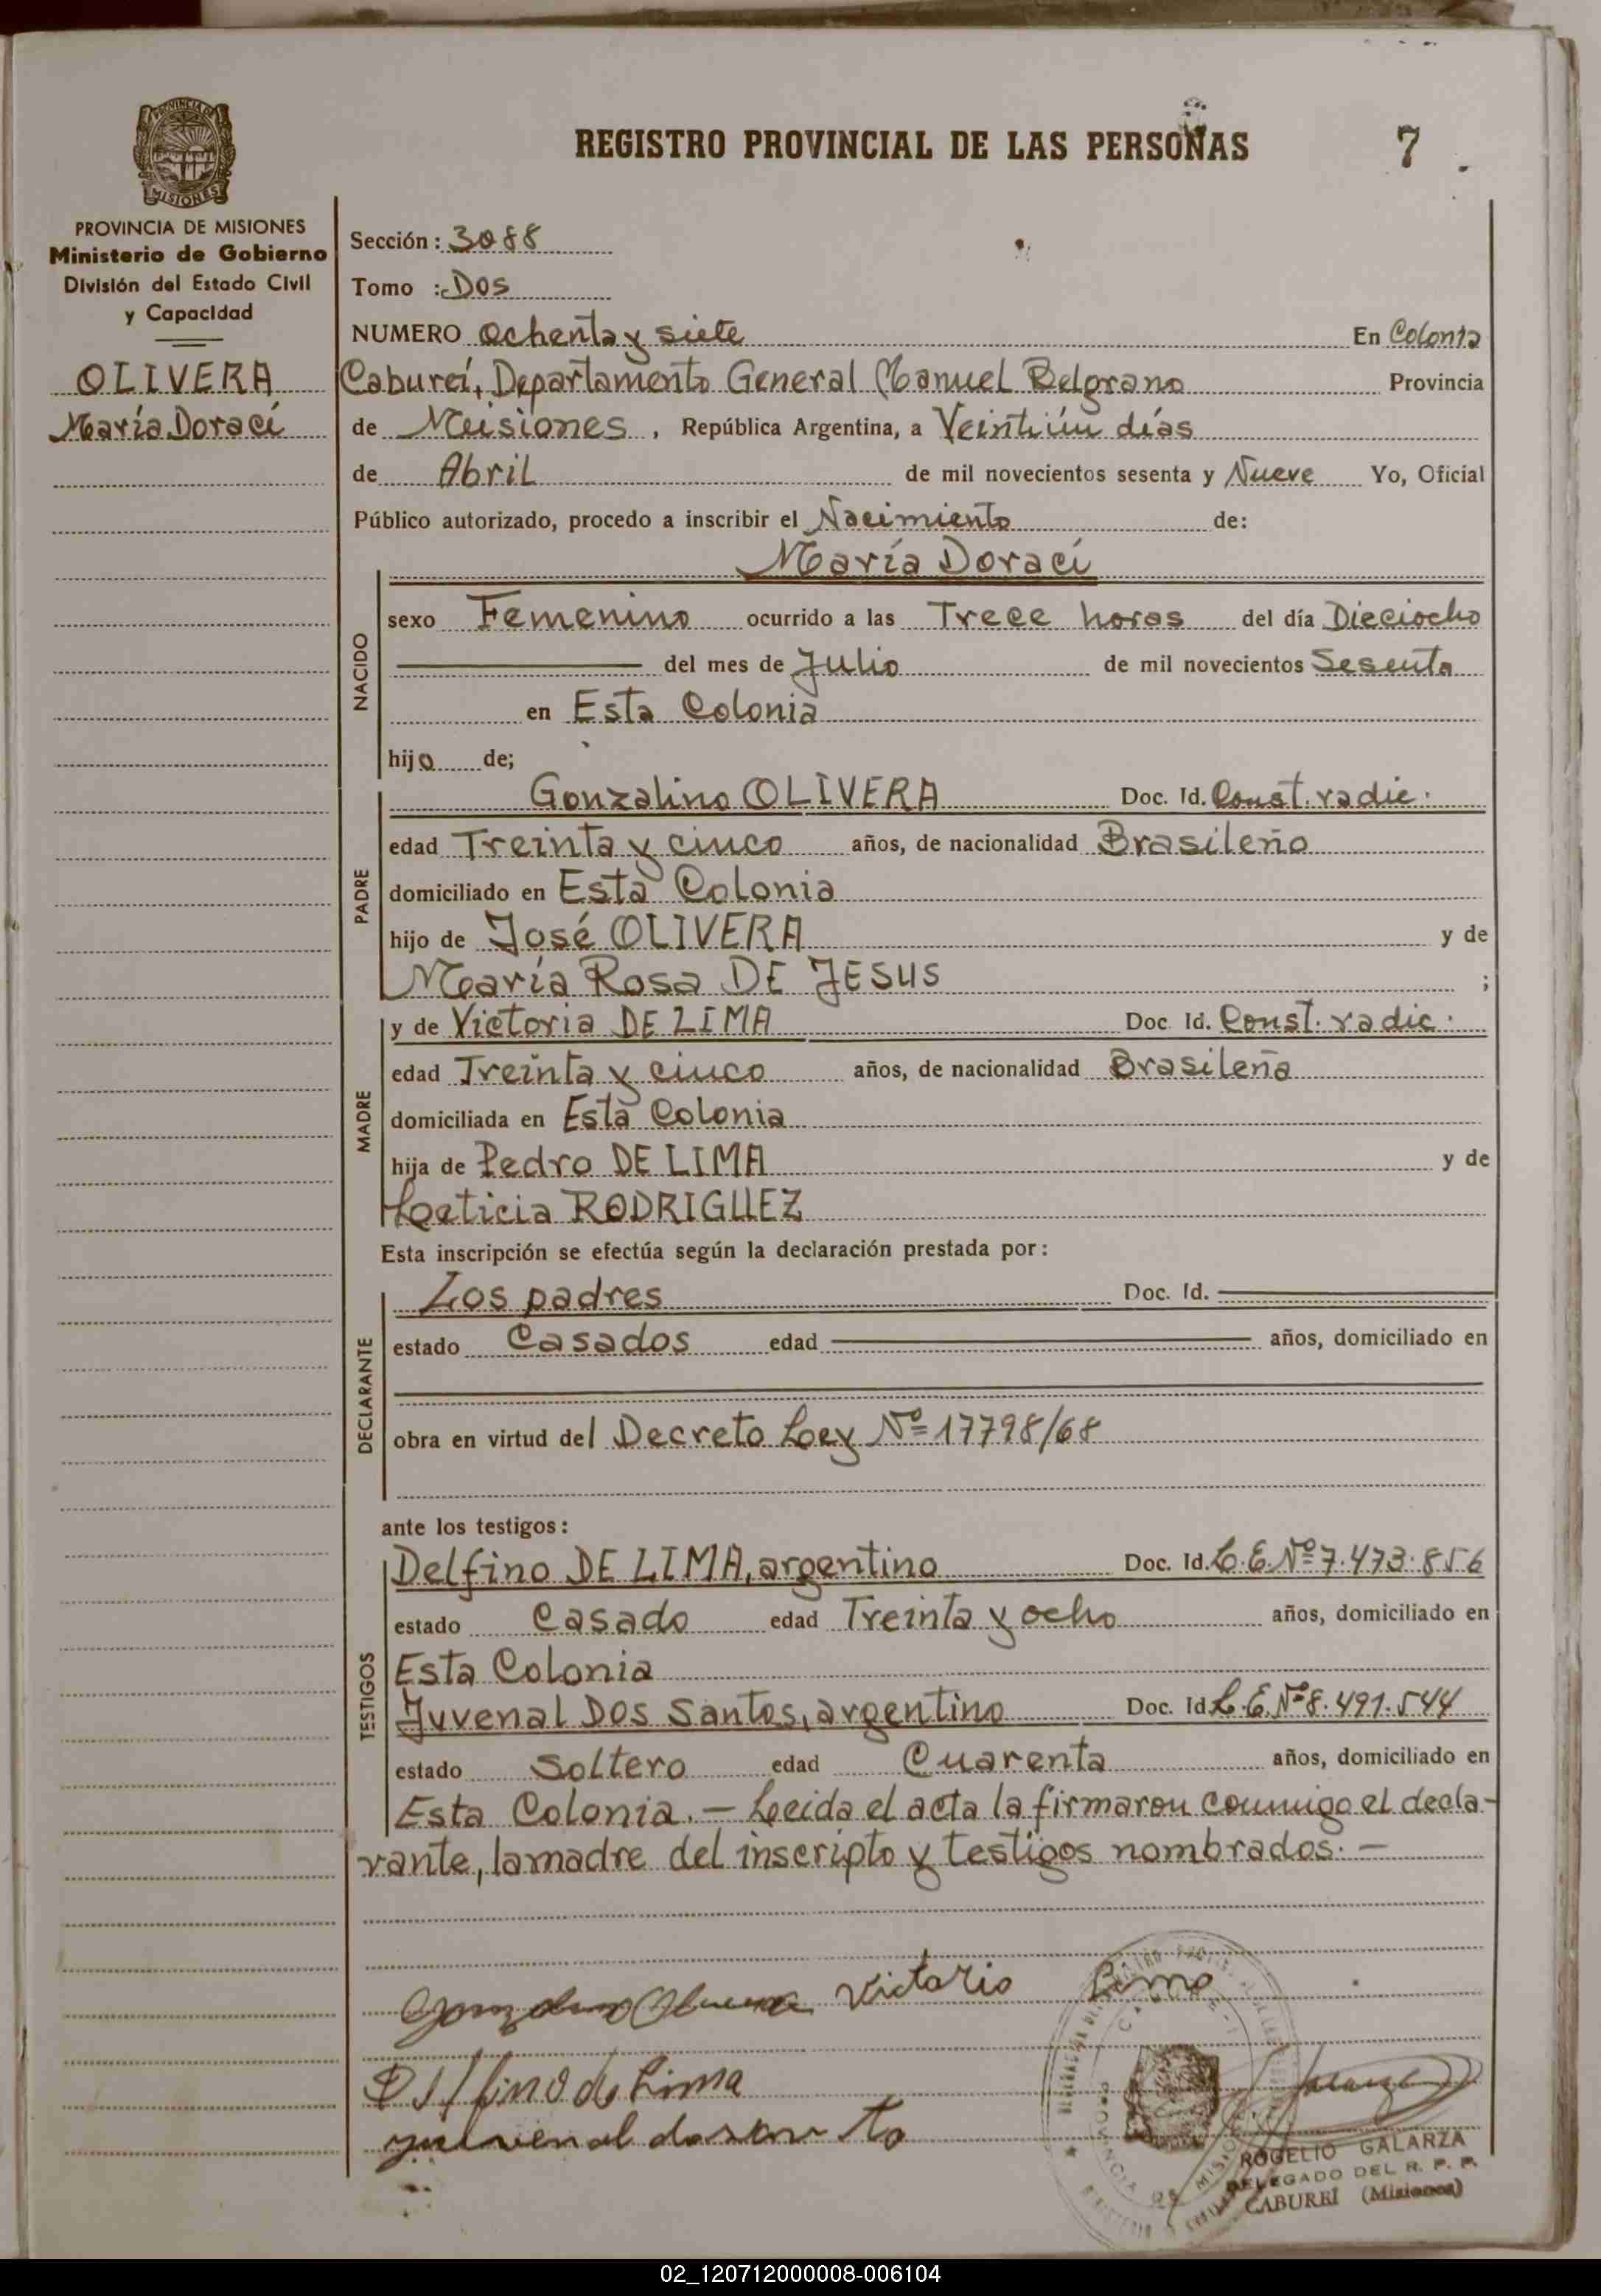 REGISTRO PROVINCIAL DE LAS PERSONAS 7
PROVINCIA DE MISIONES
Ministerio de Gobierno
División del Estado Civil
y Capacidad
OLIVERA
María Doraci
Sección: 3088
Tomo : Dos
NUMERO Ochenta y siete En Colonia
Cabureí, Departamento General Manuel Belgrano Provincia
de Misiones, República Argentina, a Veintiún días
de Abril de mil novecientos sesenta y Nueve Yo, Oficial
Público autorizado, procedo a inscribir el Nacimiento de:
María Doraci
NACIDO
sexo Femenino ocurrido a las Trece horas del día Dieciocho
del mes de Julio de mil novecientos Sesenta
en Esta Colonia
hijo de;
PADRE
Gonzalino OLIVERA Doc. Id. Const. radic.
edad Treinta y cinco años, de nacionalidad Brasileño
domiciliado en Esta Colonia
hijo de José OLIVERA y de
María Rosa DE JESUS ;
MADRE
y de Victoria DE LIMA Doc. Id. Const. radic.
edad Treinta y cinco años, de nacionalidad Brasileña
domiciliada en Esta Colonia
hija de Pedro DE LIMA y de
Leticia RODRIGUEZ
Esta inscripción se efectúa según la declaración prestada por:
DECLARANTE
Los padres Doc. Id.
estado Casados edad años, domiciliado en
obra en virtud del Decreto Ley Nº 17798/68
ante los testigos:
TESTIGOS
Delfino DE LIMA, argentino Doc. Id. L.E. Nº 7.473.856
estado Casado edad Treinta y ocho años, domiciliado en
Esta Colonia
Juvenal Dos Santos, argentino Doc. Id. L.E. Nº 8.491.544
estado Soltero edad Cuarenta años, domiciliado en
Esta Colonia.— Leida el acta la firmaron conmigo el decla-
rante, la madre del inscripto y testigos nombrados.—
Victario Lima
Delfino de Lima
ROGELIO GALARZA
DELEGADO DEL R. P. P.
CABUREÍ (Misiones)
02_120712000008-006104